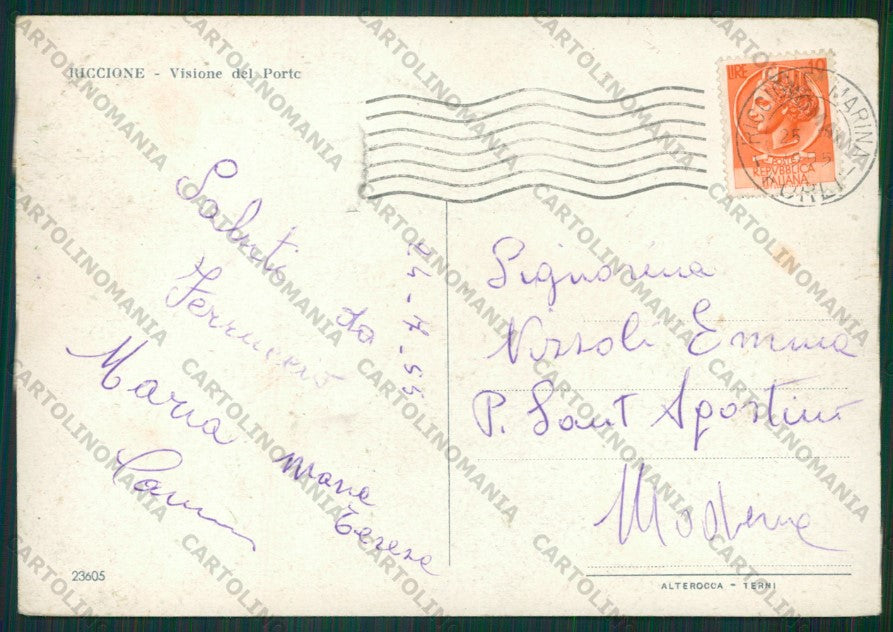 RICCIONE - Visione del Porto
LIRE 10
POSTE
REPVBBLICA
ITALIANA
Saluti da
Ferruccio
Maria
Maria
Teresa
24-7-55
Signorina
Vizzoli Emma
P. Sant Agostino
Modena
23605
ALTEROCCA - TERNI
CARTOLINOMANIA